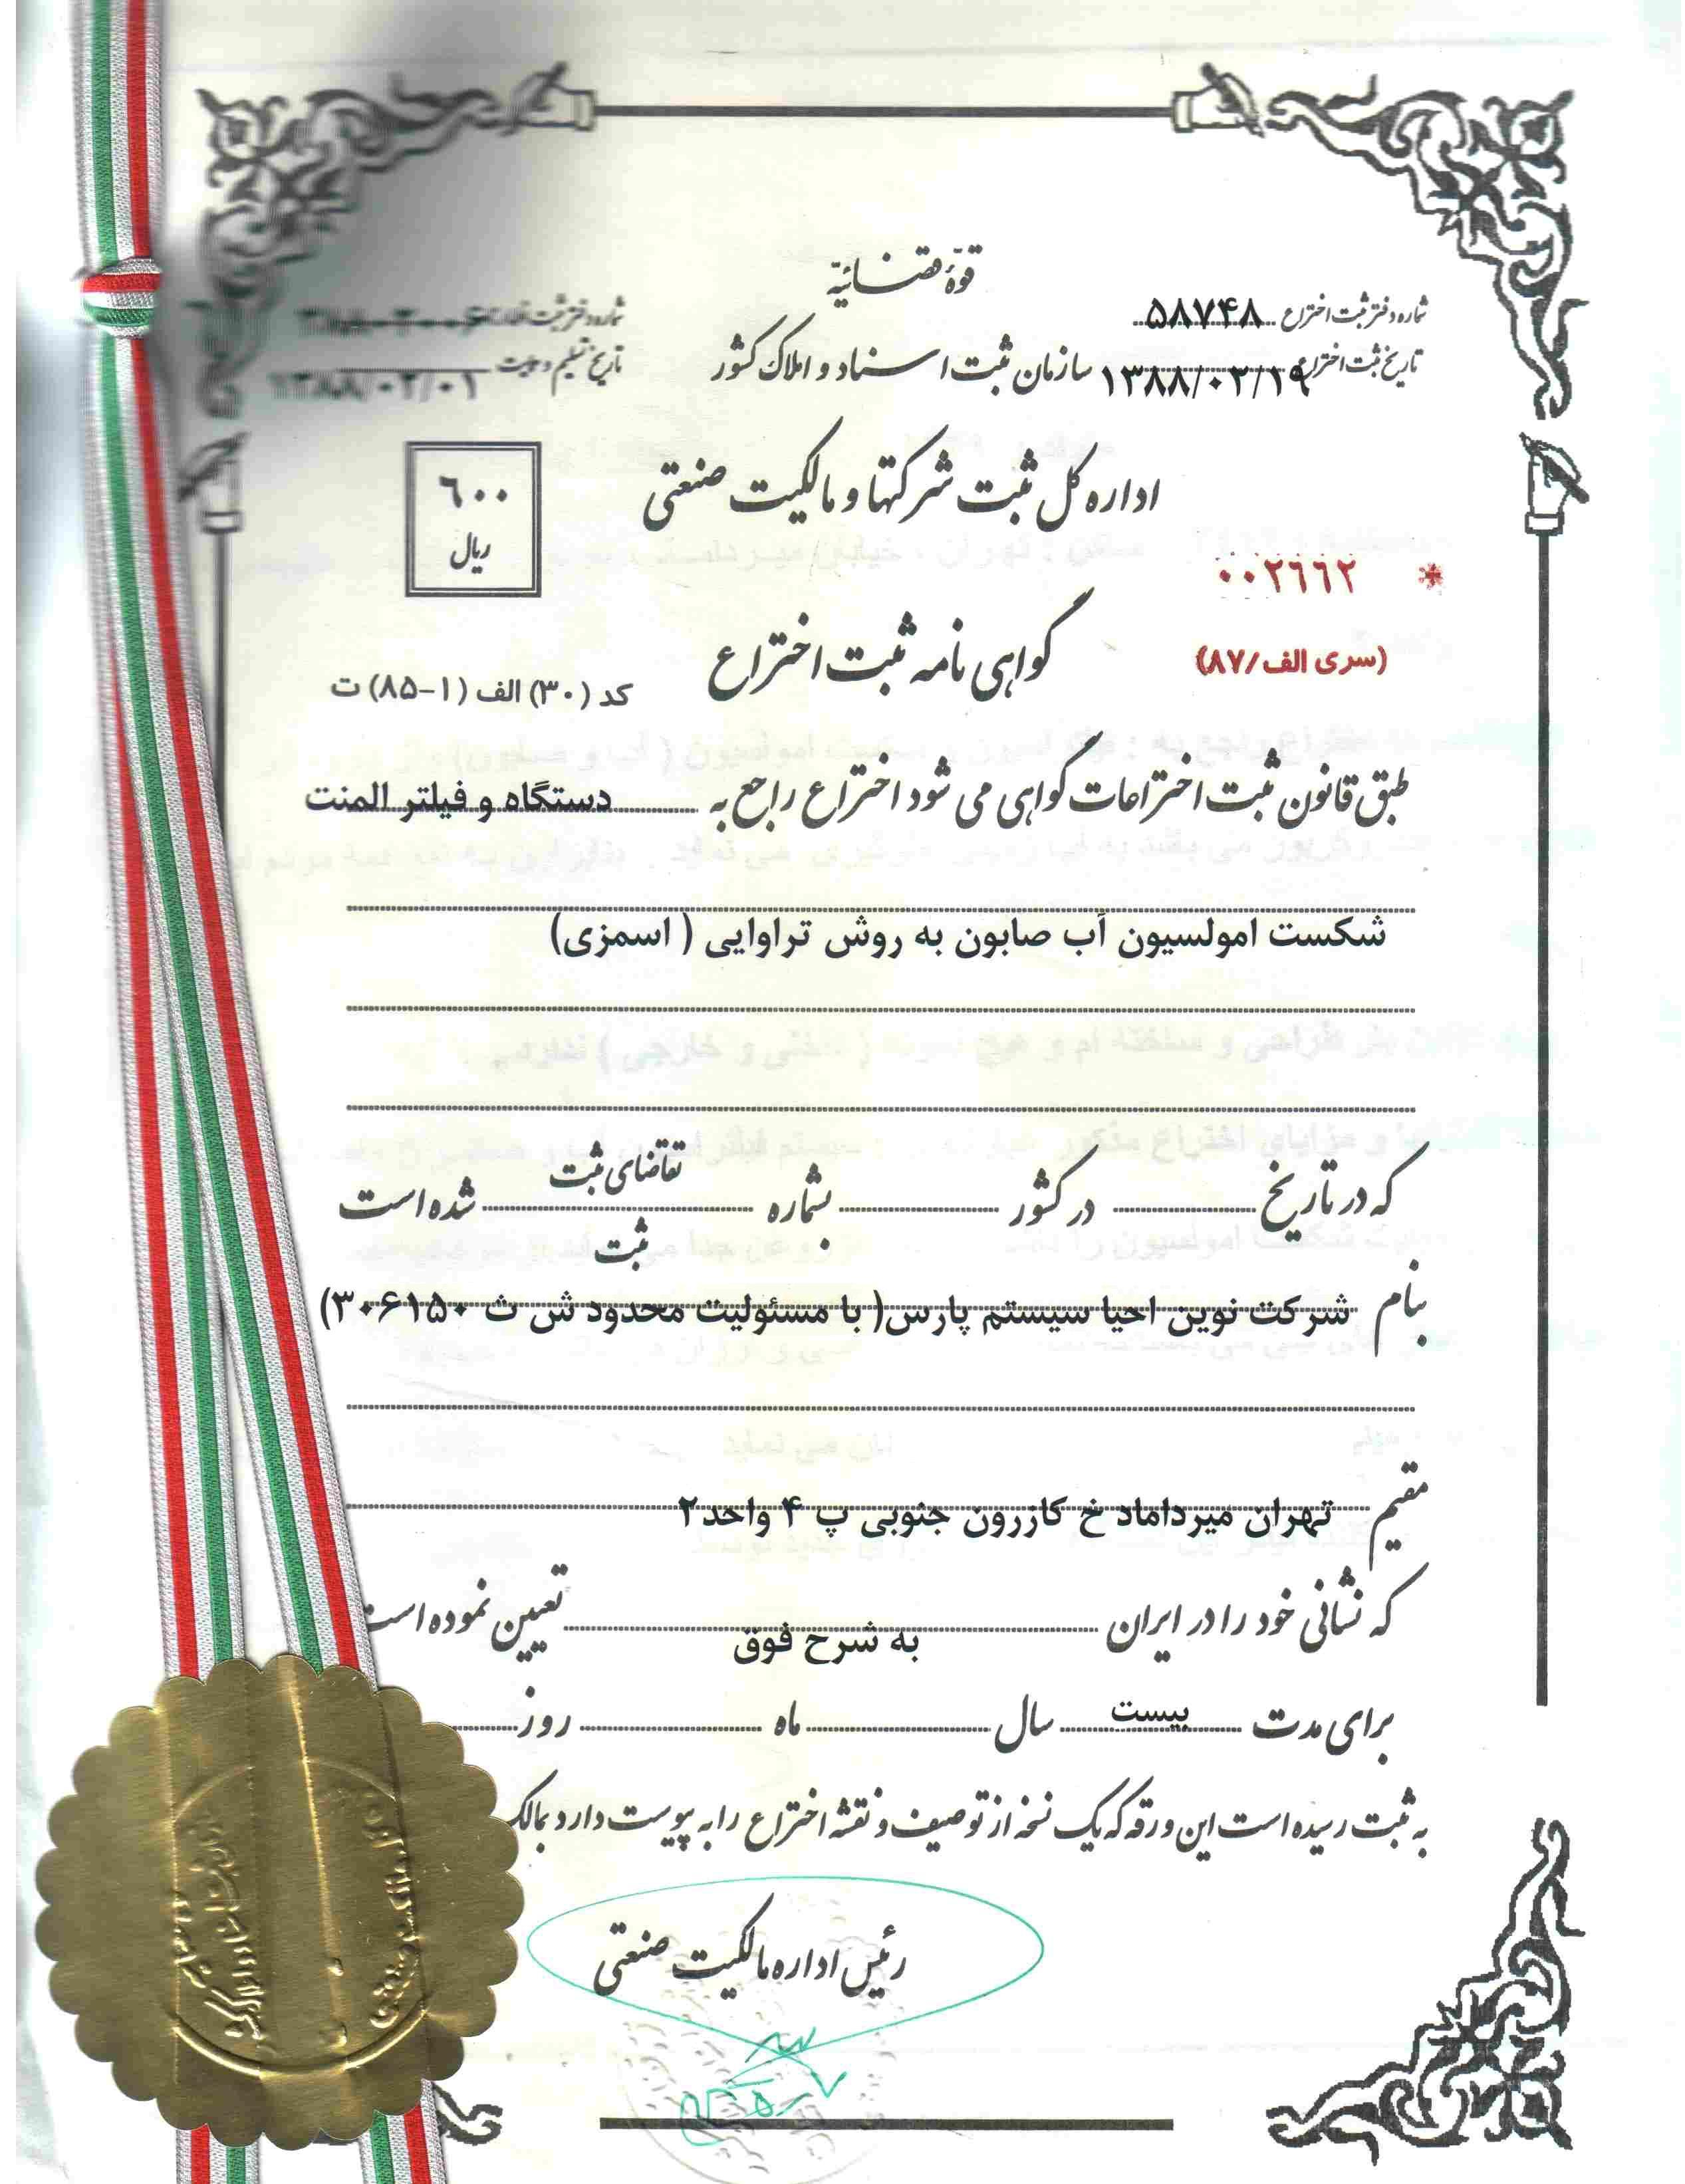 قوّهٔ قضـائیّه
شماره دفتر ثبت اختراع ۵۸۷۴۸
شماره دفتر ثبت
تاریخ ثبت اختراع ۱۳۸۸/۰۳/۱۹
سازمان ثبت اسناد و املاک کشور
تاریخ تسلیم و ۱۳۸۸/۰۳/۰۱
اداره کل ثبت شرکتها و مالکیت صنعتی
۶۰۰
ریال
* ۰۰۲۶۶۲
گواهی نامه ثبت اختراع
(سری الف/۸۷)
کد (۳۰) الف (۱-۸۵) ت
طبق قانون ثبت اختراعات گواهی می شود اختراع راجع به دستگاه و فیلتر المنت
شکست امولسیون آب صابون به روش تراوایی ( اسمزی)
که در تاریخ در کشور بشماره تقاضای ثبت شده است
ثبت
بنام شرکت نوین احیا سیستم پارس( با مسئولیت محدود ش ث ۳۰۶۱۵۰)
مقیم تهران میرداماد خ کازرون جنوبی پ ۴ واحد۲
که نشانی خود را در ایران به شرح فوق تعیین نموده است
برای مدت بیست سال ماه روز
به ثبت رسیده است این ورقه که یک نسخه از توصیف و نقشه اختراع را به پیوست دارد بمالک
رئیس اداره مالکیت صنعتی